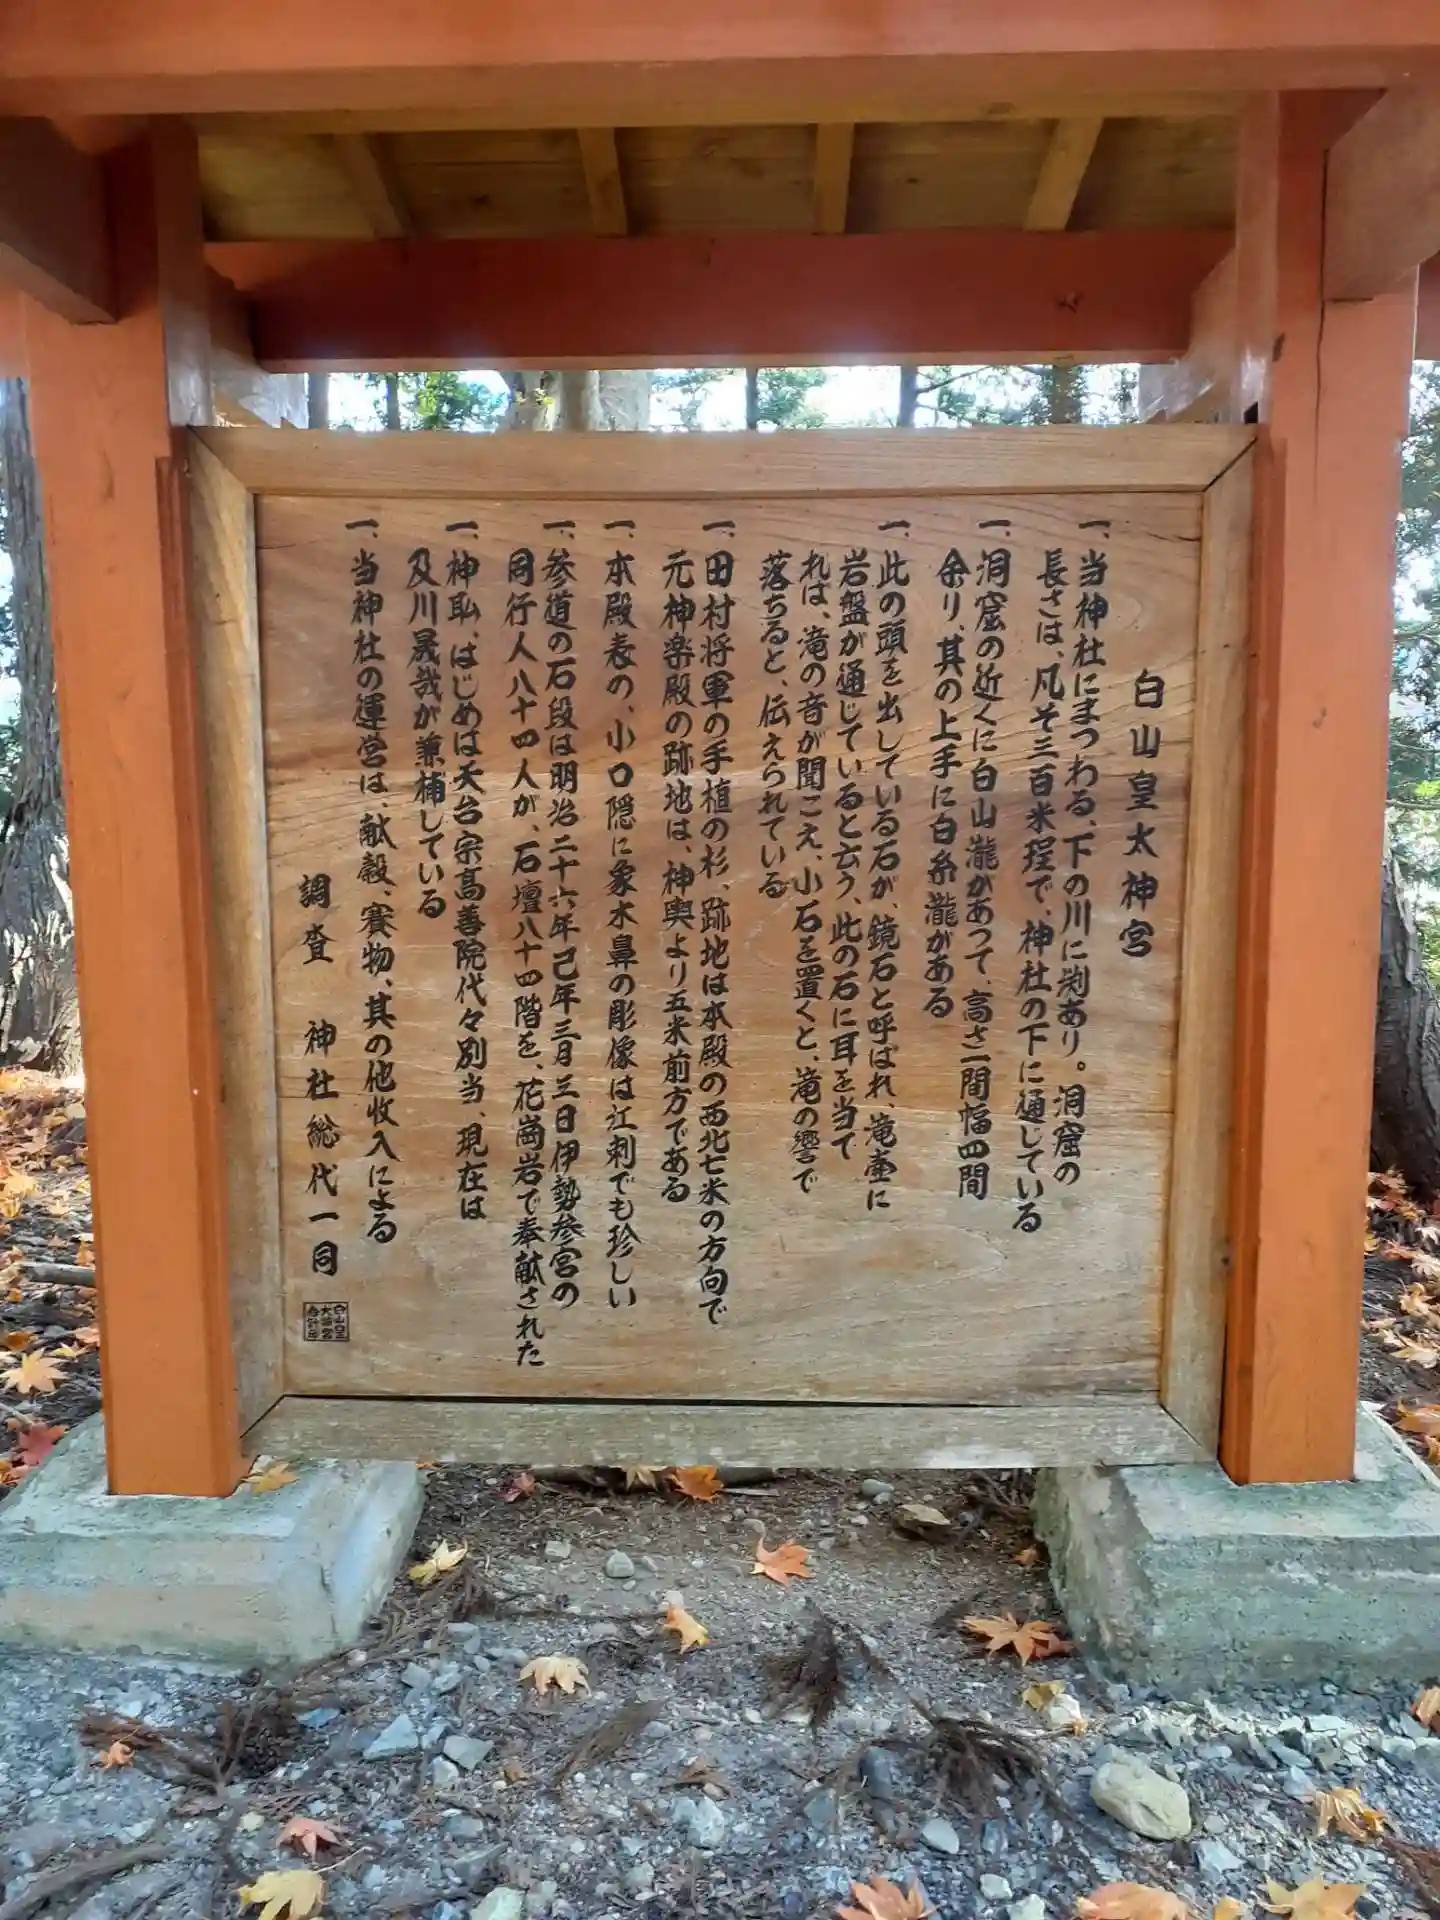 白山皇太神宮
一、当神社にまつわる、下の川に渕あり。洞窟の
長さは、凡そ三百米程で、神社の下に通じている
一、洞窟の近くに白山瀧があって、高さ二間幅四間
余り、其の上手に白糸瀧がある
一、此の頭を出している石が、鏡石と呼ばれ滝壷に
岩盤が通じていると云う、此の石に耳を当て
れば、滝の音が聞こえ、小石を置くと、滝の響で
落ちると、伝えられている
一、田村将軍の手植の杉、跡地は本殿の西北七米の方向で
元神楽殿の跡地は、神輿より五米前方である
一、本殿表の、小口隠に象木鼻の彫像は江刺でも珍しい
一、参道の石段は明治二十六年己年三月三日伊勢参宮の
同行人八十四人が、石壇八十四階を、花崗岩で奉献された
一、神職、はじめは天台宗高善院代々別当、現在は
及川晟哉が兼補している
一、当神社の運営は、献穀、賽物、其の他收入による
調査 神社総代一同